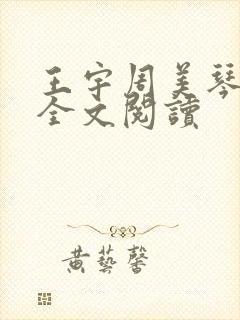 王宇周美琴
全文閱讀
黄藝馨